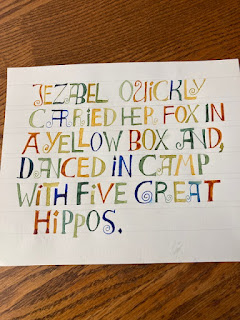 JEZABEL QUICKLY
CARRIED HER FOX IN
A YELLOW BOX AND,
DANCED IN CAMP
WITH FIVE GREAT
HIPPOS.